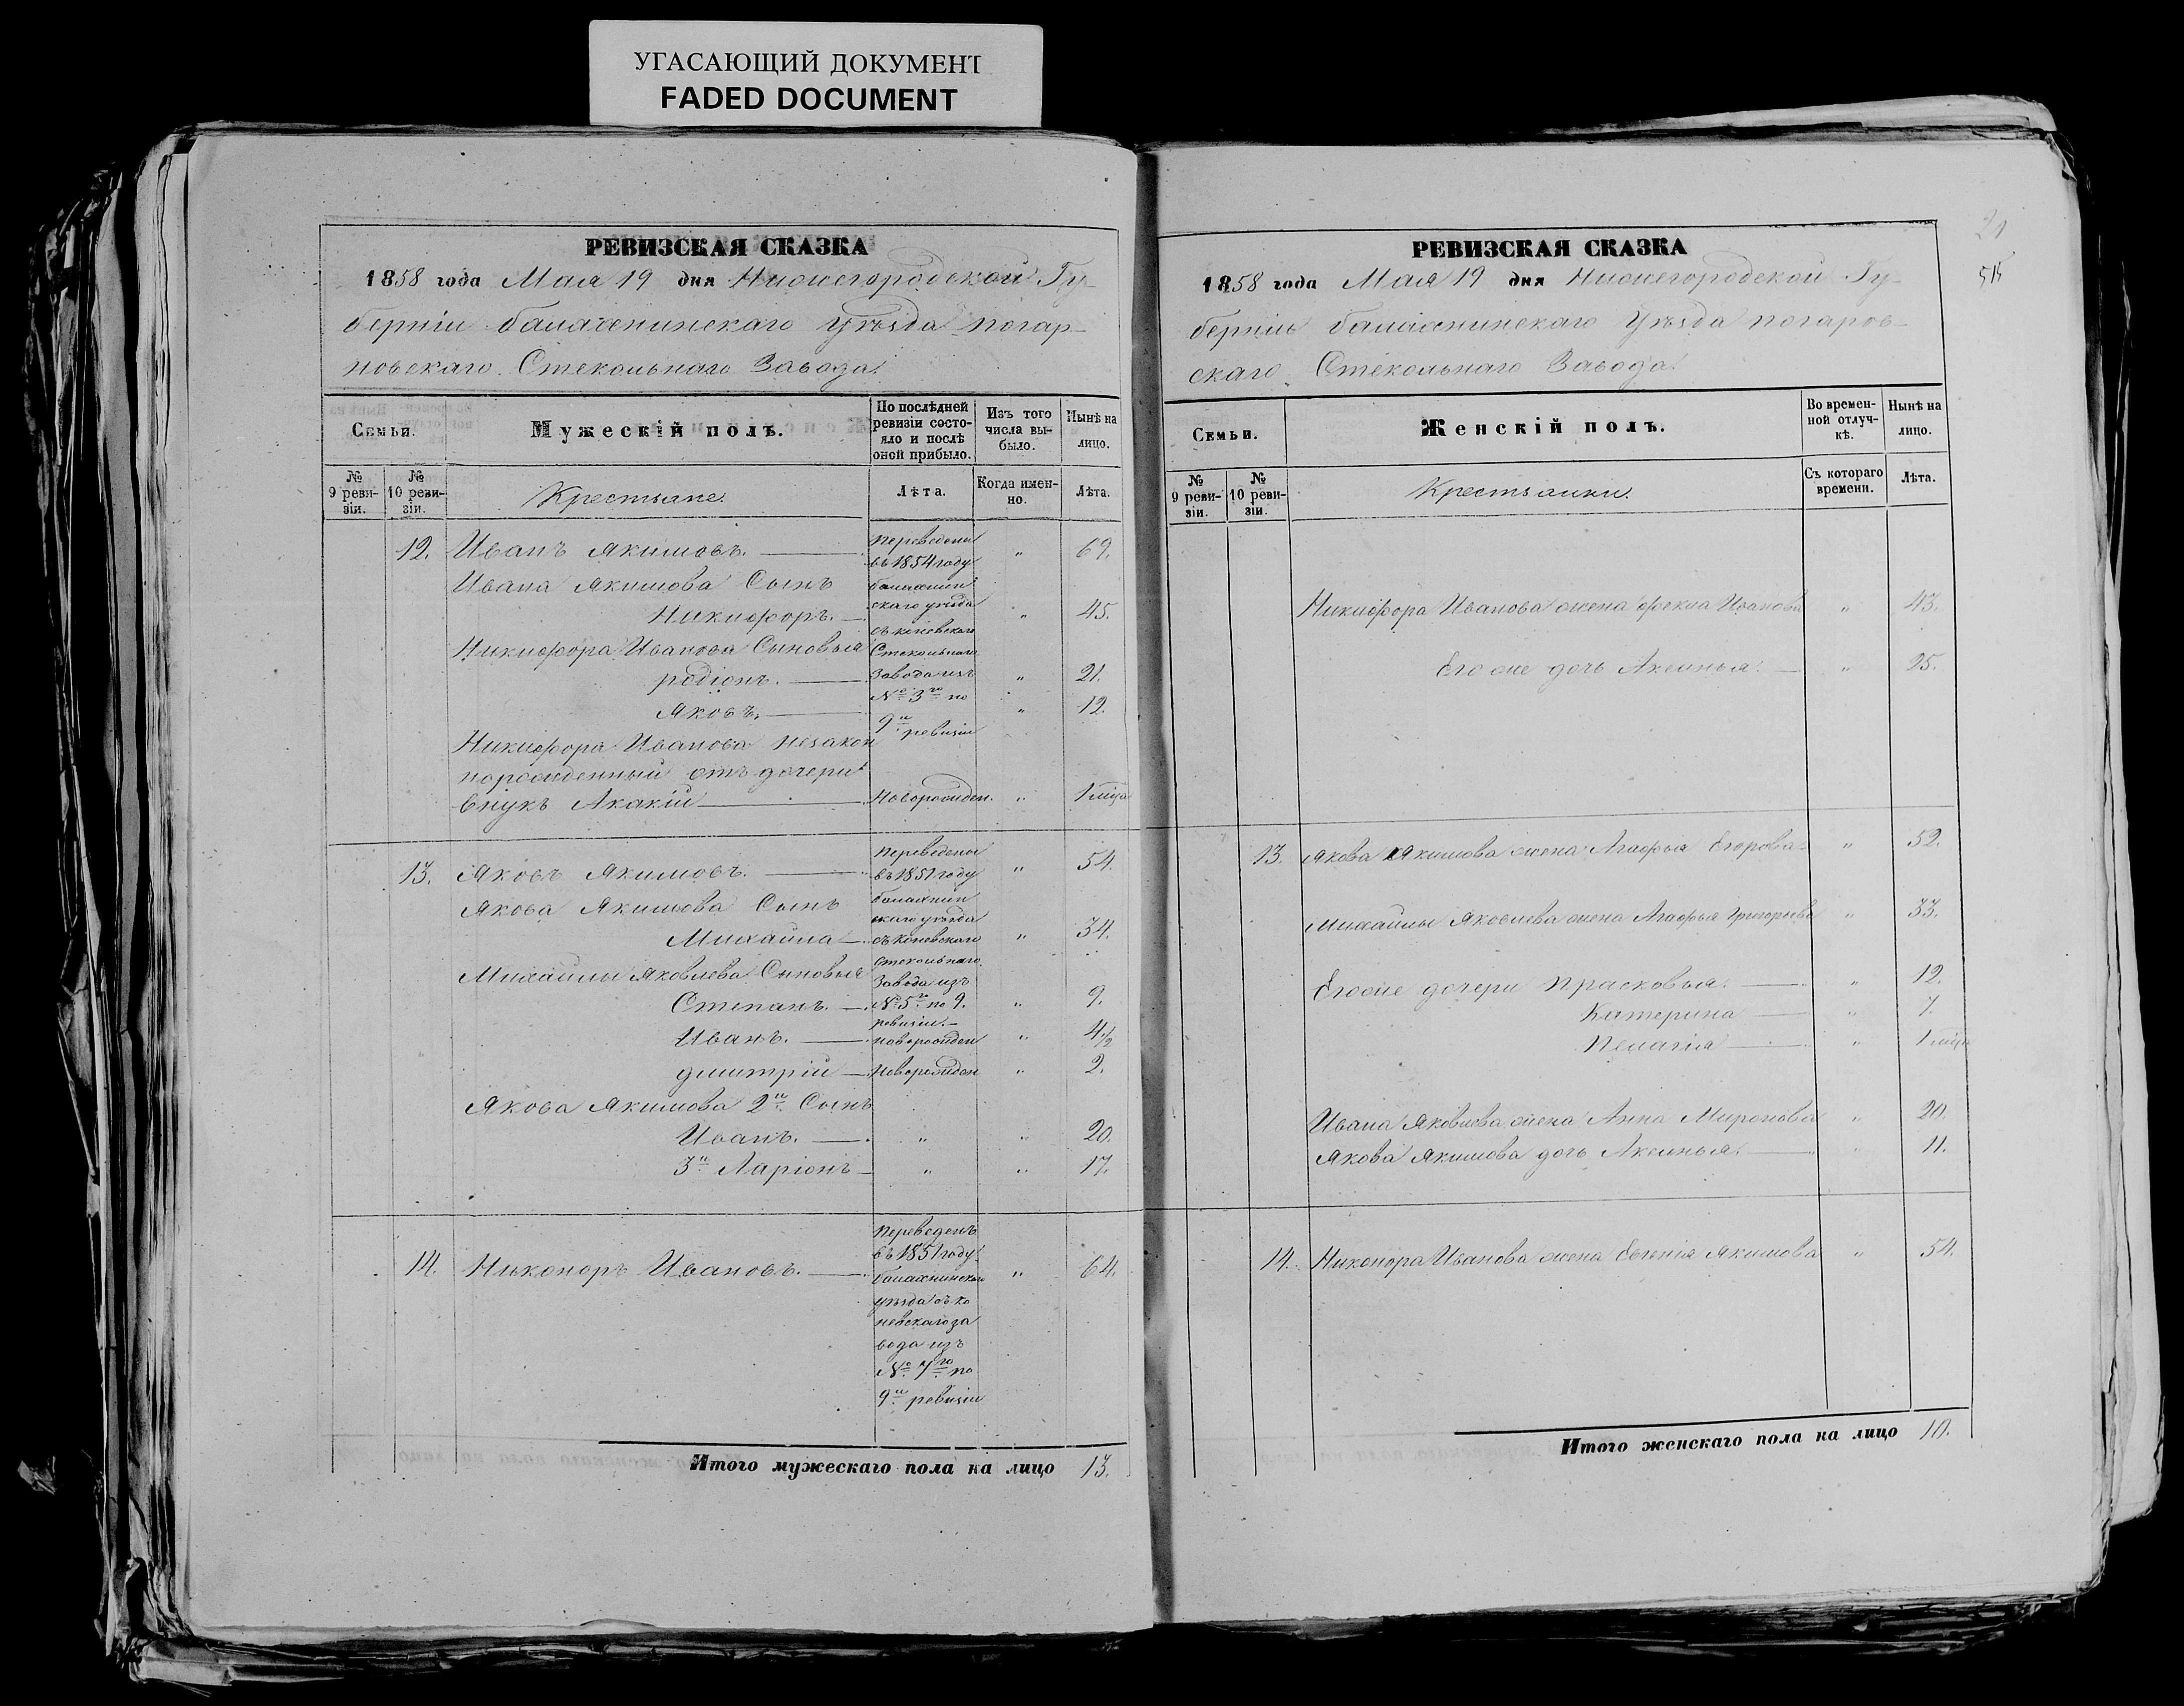 УГАСАЮЩИЙ ДОКУМЕНТ
FADED DOCUMENT
РЕВИЗСКАЯ СКАЗКА
1858 года Мая 19 дня Нижегородской Гу-
берніи балахнинскаго Уѣзда погар-
новскаго Стекольнаго Завода.
Семьи.
Мужескій полъ.
По послѣдней
ревизіи состо-
яло и послѣ
оной прибыло.
Изъ того
числа вы-
было.
Нынѣ на
лицо.
№
9 реви-
зіи.
№
10 реви-
зіи.
Крестьяне.
Лѣта.
Когда имен-
но.
Лѣта.
12. Иванъ Якимовъ. — " 69.
Переведены
въ 1854 году
балахнин
скаго уѣзда
съ коновскаго
Стекольнаго
Завода изъ
№ 3го по
9й ревизіи
Ивана Якимова Сынъ
Никифоръ. — " 45.
Никифора Иванова Сыновья
родіонъ. — " 21.
Яковъ. — " 12.
Никифора Иванова незакон
норожденный отъ дочери
внукъ Акакій — Новорожден. " 1 мѣца
13. Яковъ Якимовъ. — " 54.
Переведены
въ 1851 году
балахнин
скаго уѣзда
съ коневскаго
стекольнаго
Завода изъ
№ 5го по 9.
ревизіи. —
Якова Якимова Сынъ
Михайла — " 34.
Михайлы Яковлева Сыновья
Степанъ. — " 9.
Иванъ. — новорожден " 4 1/2
дмитрій — Новорожден " 2.
Якова Якимова 2й Сынъ
Иванъ. — " " 20.
3й Ларіонъ — " " 17.
14. Никоноръ Ивановъ. — " 64.
Переведенъ
въ 1851 году
балахнинскаго
уѣзда съ ко
невскаго за
вода изъ
№ 7го по
9й ревизіи
Итого мужескаго пола на лицо 13.
21
515
РЕВИЗСКАЯ СКАЗКА
1858 года Мая 19 дня Нижегородской Гу-
берніи балахнинскаго Уѣзда погаров-
скаго Стекольнаго Завода.
Семьи.
Женскій полъ.
Во времен-
ной отлуч-
кѣ.
Нынѣ на
лицо.
№
9 реви-
зіи.
№
10 реви-
зіи.
Крестьянки.
Съ котораго
времени.
Лѣта.
Никифора Иванова жена фекла Иванова " 43.
Его же дочь Аксинья. — " 25.
13. Якова Якимова жена Агафья Егорова. " 52.
Михайлы Яковлева жена Агафья Григорьева " 33.
Егоже дочери Прасковья. — " 12.
Катерина — " 7.
Пелагія — " 1 мѣца
Ивана Яковлева жена Анна Миронова " 20.
Якова Якимова дочь Аксинья. — " 11.
14. Никонора Иванова жена Евгенія Якимова " 54.
Итого женскаго пола на лицо 10.